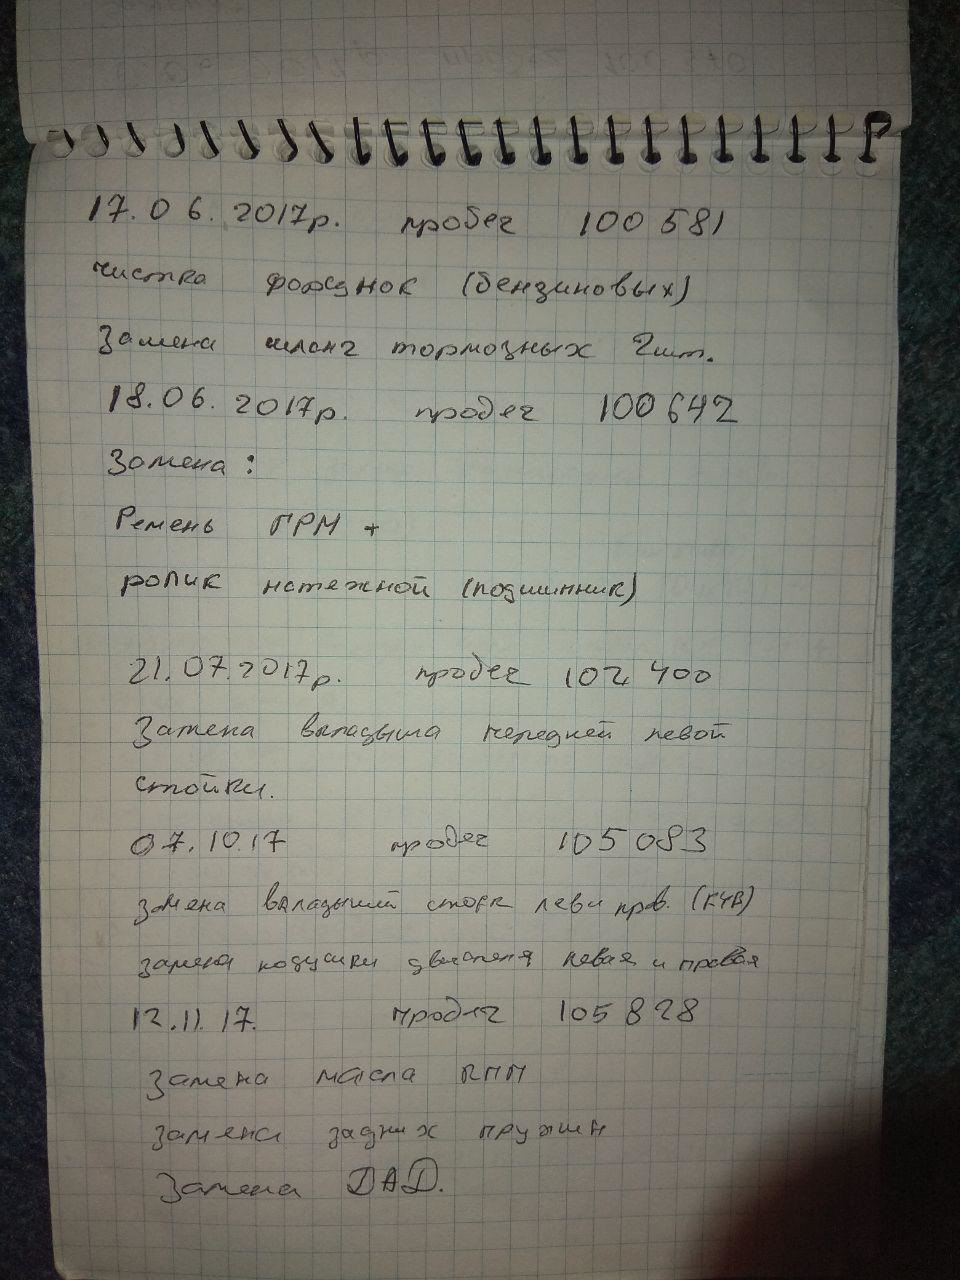 17.06.2017р. пробег 100 581
чистка форсунок (бензиновых)
Замена шланг тормозных 2шт.
18.06.2017р. пробег 100 642
Замена:
Ремень ГРМ +
ролик натежной (подшипник)
21.07.2017р. пробег 102 400
Замена вкладыша передней левой
стойки.
07.10.17 пробег 105 083
замена вкладыший стоек лев и прв. (KYB)
замена подушки двигателя левая и правая
12.11.17. пробег 105 828
Замена масла КПП
замена задних пружин
Замена ДАД.